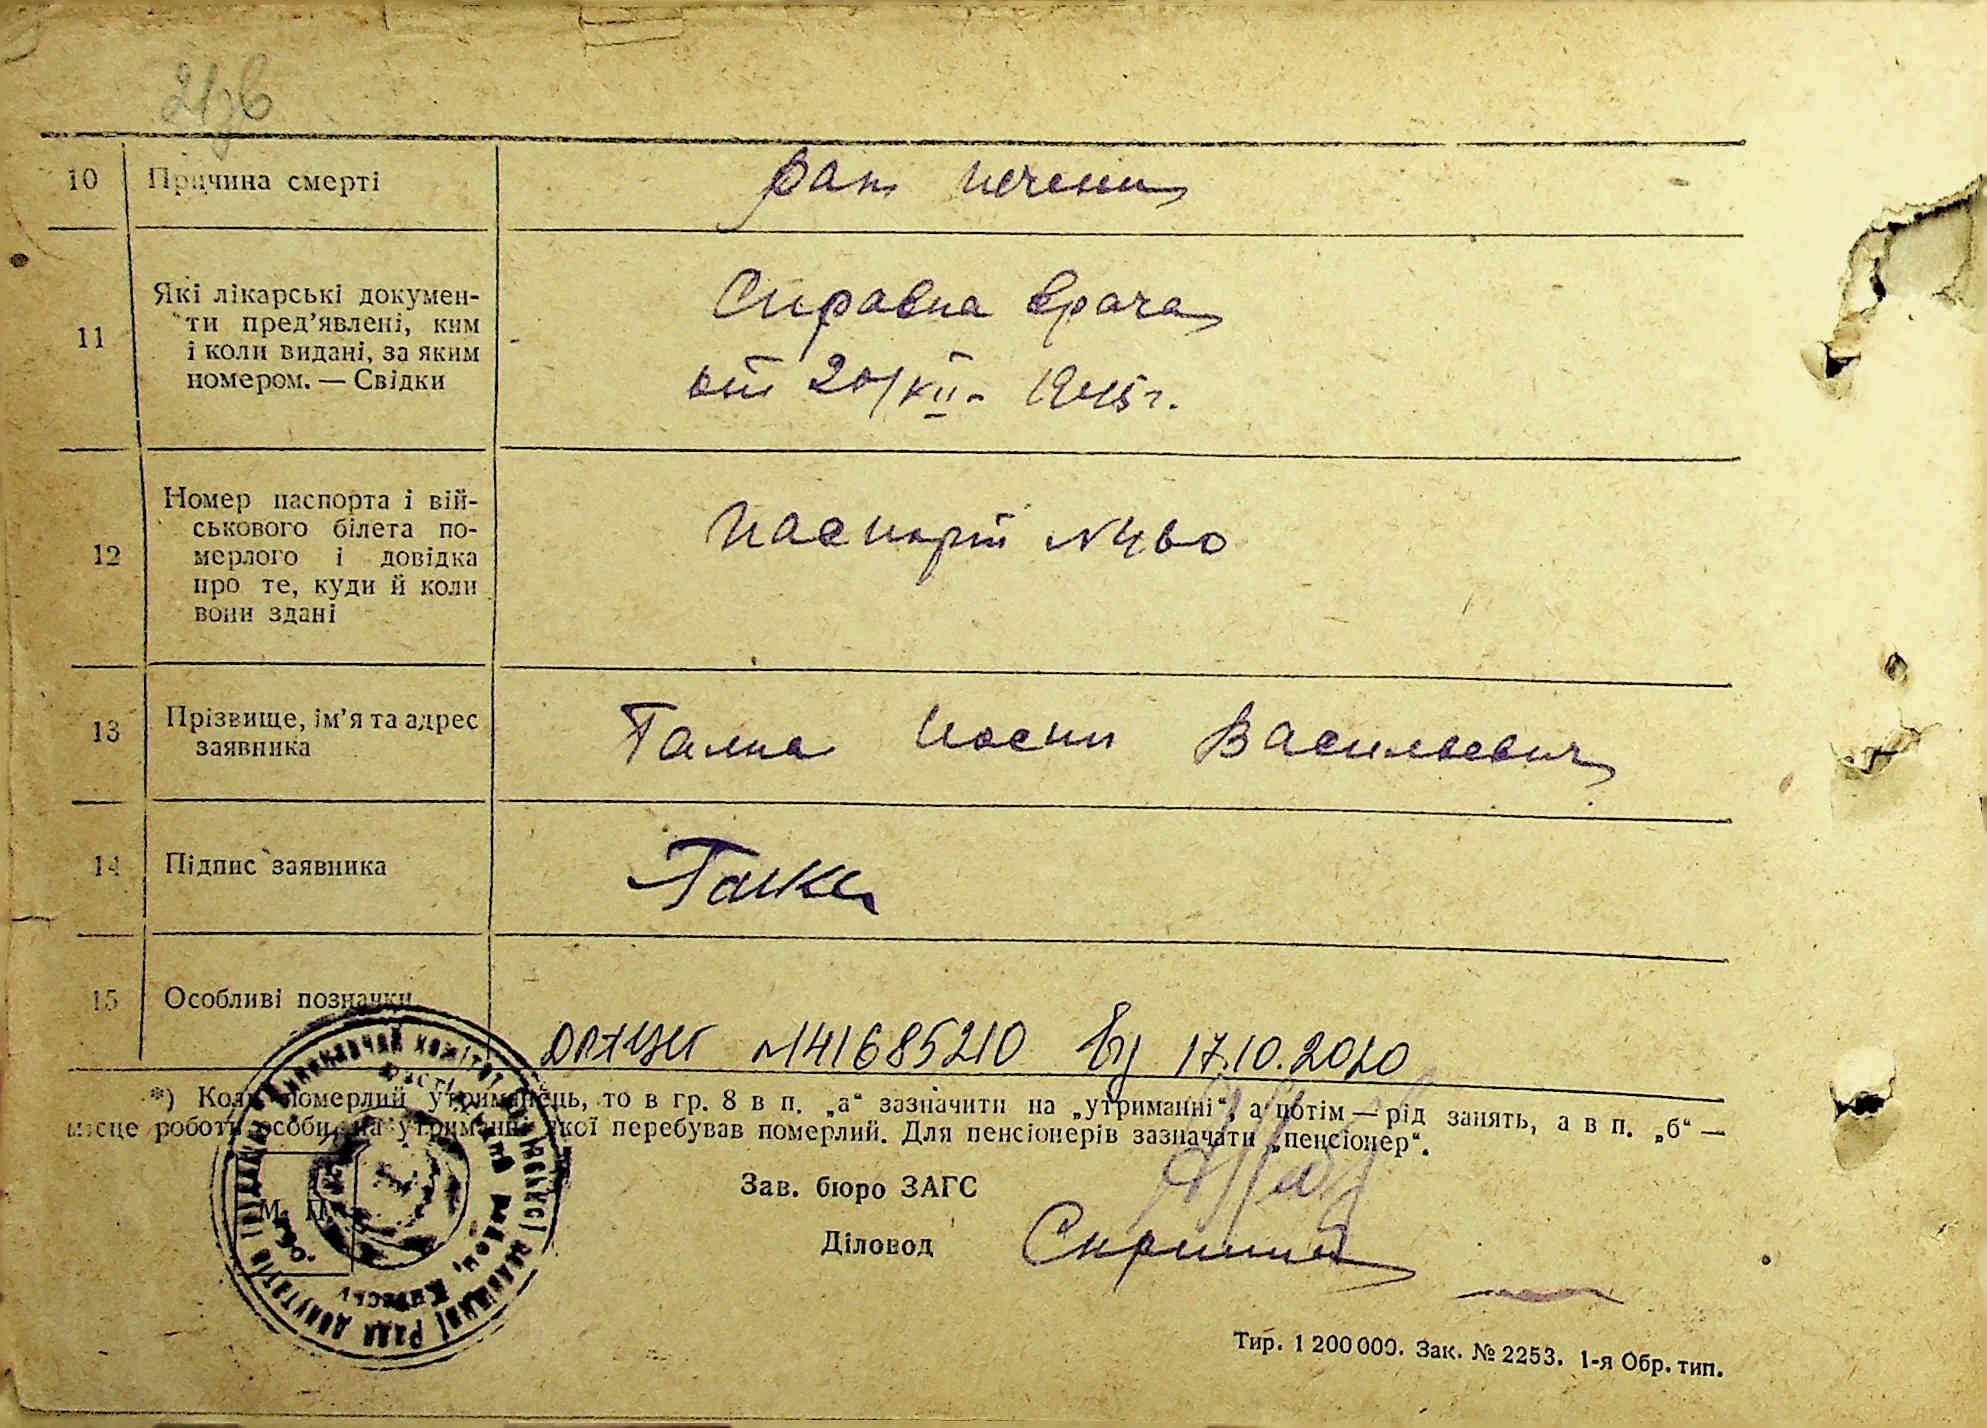 10 Причина смерті рак печени
11 Які лікарські докумен-
ти пред’явлені, ким
і коли видані, за яким
номером. — Свідки
Справка врача
от 20/XII - 1945 г.
12 Номер паспорта і вій-
ськового білета по-
мерлого і довідка
про те, куди й коли
вони здані
Паспорт №
13 Прізвище, ім’я та адрес
заявника
Иосип Васильевич
14 Підпис заявника
15 Особливі позначки
ДРАЦСГ №41685210 від 17.10.2020
*) Коли померлий утриманець, то в гр. 8 в п. „а“ зазначити на „утриманні“, а потім — рід занять, а в п. „б“ —
місце роботи особи, на утриманні якої перебував померлий. Для пенсіонерів зазначати „пенсіонер“.
Зав. бюро ЗАГС
М. П.
Діловод
Тир. 1 200 000. Зак. № 2253. 1-я Обр. тип.